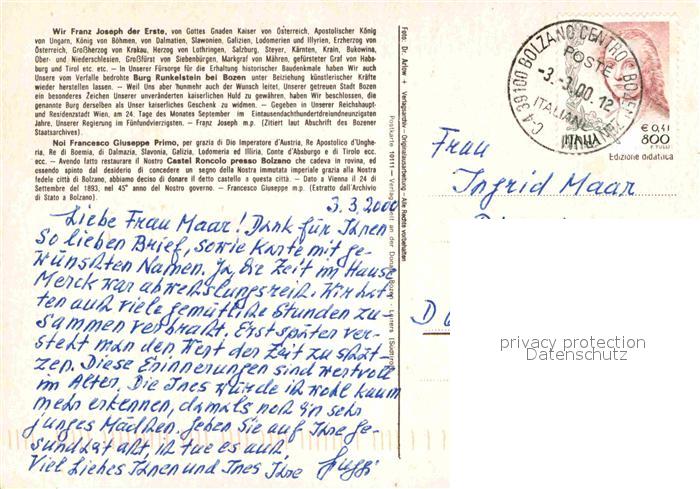 Wir Franz Joseph der Erste, von Gottes Gnaden Kaiser von Österreich, Apostolischer König
von Ungarn, König von Böhmen, von Dalmatien, Slawonien, Galizien, Lodomerien und Illyrien, Erzherzog von
Österreich, Großherzog von Krakau, Herzog von Lothringen, Salzburg, Steyer, Kärnten, Krain, Bukowina,
Ober- und Niederschlesien, Großfürst von Siebenbürgen, Markgraf von Mähren, gefürsteter Graf von Habs-
burg und Tirol etc. etc. — In Unserer Fürsorge für die Erhaltung historischer Baudenkmale haben Wir auch
Unsere vom Verfalle bedrohte Burg Runkelstein bei Bozen unter Beiziehung künstlerischer Kräfte
wieder herstellen lassen. — Weil Uns aber nunmehr auch der Wunsch leitet, Unserer getreuen Stadt Bozen
ein besonderes Zeichen Unserer unveränderten kaiserlichen Huld zu gewähren, haben Wir beschlossen, die
genannte Burg derselben als Unser kaiserliches Geschenk zu widmen. — Gegeben in Unserer Reichshaupt-
und Residenzstadt Wien, am 24. Tage des Monates September im Eintausendachthundertdreiundneunzigsten
Jahre, Unserer Regierung im Fünfundvierzigsten. — Franz Joseph m.p. (Zitiert laut Abschrift des Bozener
Staatsarchives).
Noi Francesco Giuseppe Primo, per grazia di Dio Imperatore d'Austria, Re Apostolico d'Unghe-
ria, Re di Boemia, di Dalmazia, Slavonia, Galizia, Lodomeria ed Illiria, Conte d'Absburgo e di Tirolo ecc.
ecc. — Avendo fatto restaurare il Nostro Castel Roncolo presso Bolzano che cadeva in rovina, ed
essendo spinto dal desiderio di concedere un segno della Nostra immutata imperiale grazia alla Nostra
fedele città di Bolzano, abbiamo deciso di donare il detto castello a questa città. — Dato a Vienna il 24 di
Settembre del 1893, nel 45° anno del Nostro governo. — Francesco Giuseppe m.p. (Extratto dall'Archivio
di Stato a Bolzano).
3.3.2000
Liebe Frau Maar! Dank für Ihnen
so lieben Brief, sowie Karte mit ge-
wünschten Namen. Ja, die Zeit im Hause
Merck war abwechslungsreich. Wir hat-
ten auch viele gemütliche Stunden zu-
sammen verbracht. Erst später ver-
steht man den Wert der Zeit zu schät-
zen. Diese Erinnerungen sind wertvoll
im Alter. Die Ines würde ich wohl kaum
mehr erkennen, damals noch ein sehr
junges Mädchen. Geben Sie auf Ihre Ge-
sundheit acht, ich tue es auch.
Viel Liebes Ihnen und Ines Ihre
Foto: Dr. Artow — Verlagsarchiv — Originalausarbeitung — Alle Rechte vorbehalten
Postkarte 10111 — Verlag
39100 BOLZANO CENTRO * BOZEN
POSTE
-3.-3.00.12
ITALIANE
ITALIA
€ 0,41
800
Edizione didattica
Frau
Ingrid Maar
D
privacy protection
Datenschutz